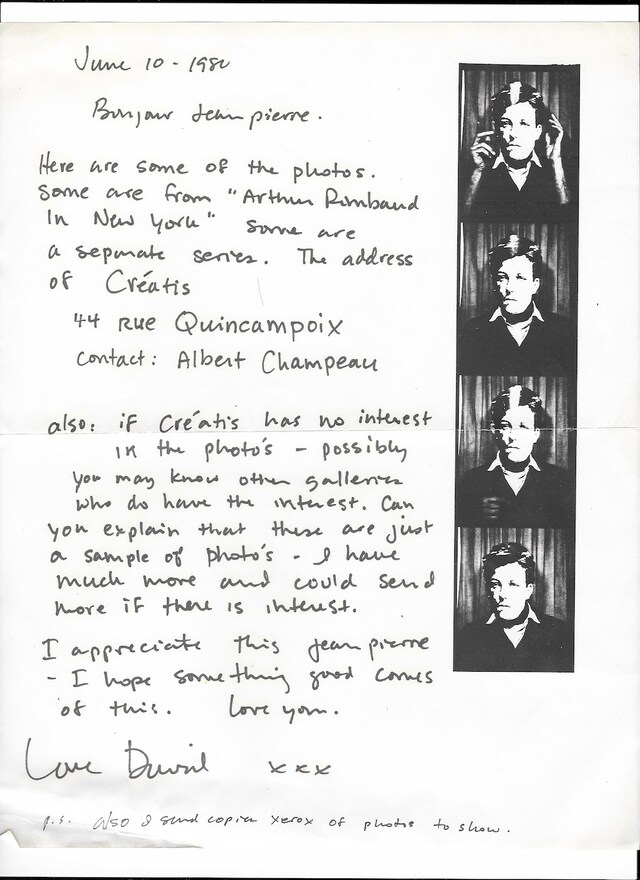 June 10 - 1980
Bonjour Jean pierre.
Here are some of the photos.
Some are from "Arthur Rimbaud
In New York" Some are
a separate series. The address
of Créatis
44 Rue Quincampoix
contact: Albert Champeau
also: if Créatis has no interest
in the photo's - possibly
you may know other galleries
who do have the interest. Can
you explain that these are just
a sample of photo's - I have
much more and could send
more if there is interest.
I appreciate this Jean pierre
- I hope something good comes
of this. Love you.
Love David xxx
p.s. also I send copies xerox of photos to show.